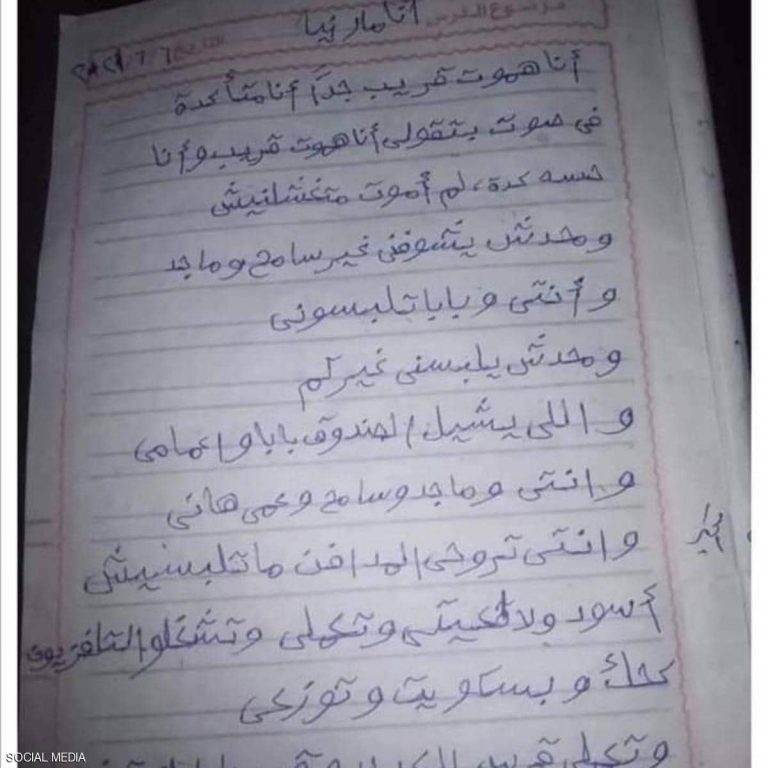 موضوع الدرس
أنا مارنيا
التاريخ
أنا هموت قريب جداً أنا متأكدة
فى صوت بتقولى أنا هموت قريب وأنا
حسه كدة، لم أموت متغسلنيش
ومحدش يشوفنى غير سامح وماجد
وأنتى وبابا تلبسونى
ومحدش يلبسنى غيركم
واللى يشيل الصندوق بابا واعمامى
وانتى وماجد وسامح وعمى هانى
وانتى تروحى المدافن ماتلبسيش
أسود ولا تعيتى وتكملى وتشغلو التلفزيون
كحك وبسكويت وتوزعى
SOCIAL MEDIA